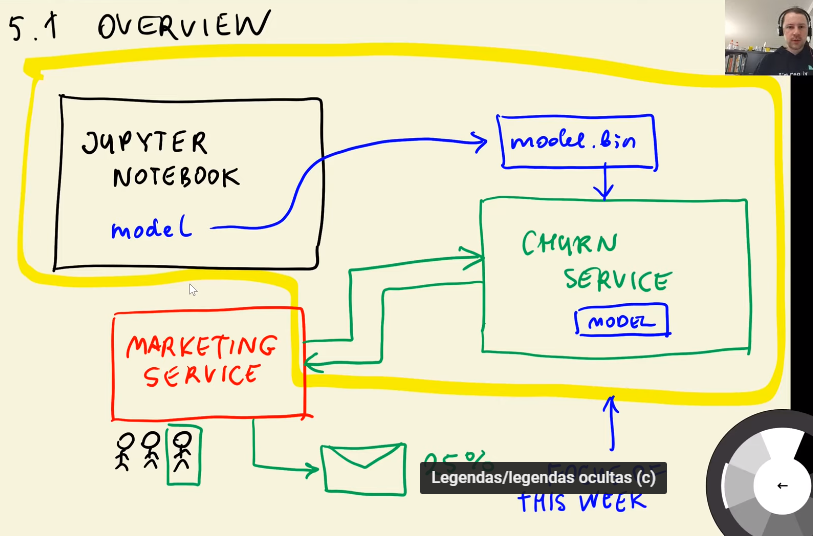 5.1 OVERVIEW
JUPYTER
NOTEBOOK
model
model.bin
CHURN
SERVICE
MODEL
MARKETING
SERVICE
25%
Legendas/legendas ocultas (c)
THIS WEEK